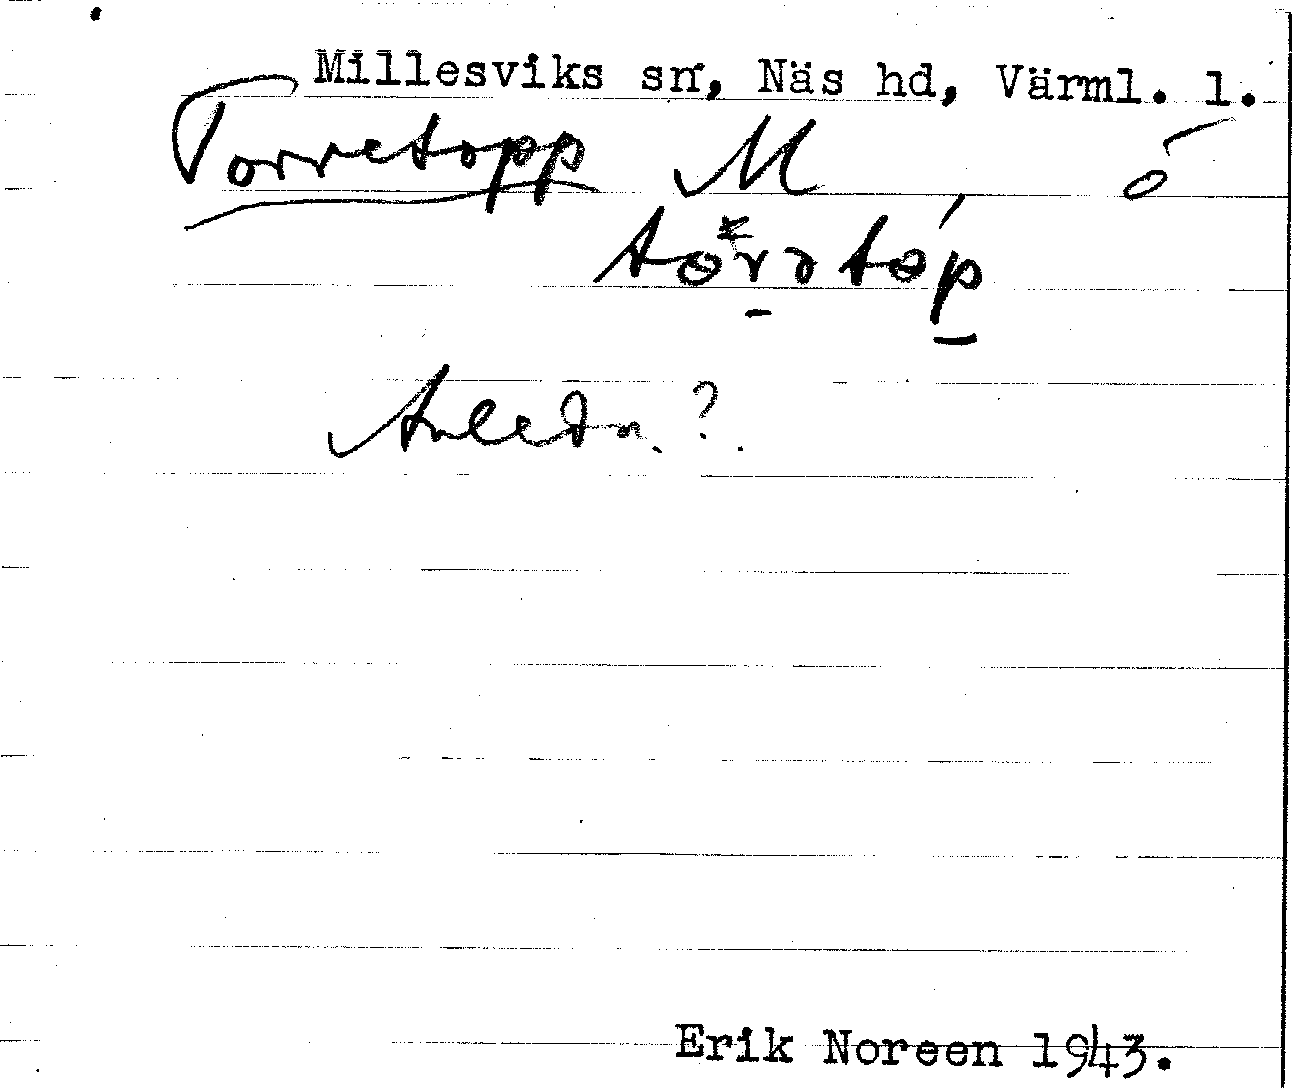 Millesviks sn, Näs hd, Värml. l.
Torretopp M ó
tɵ̀rətɵ́p
Anledn.?
Erik Noreen 1943.